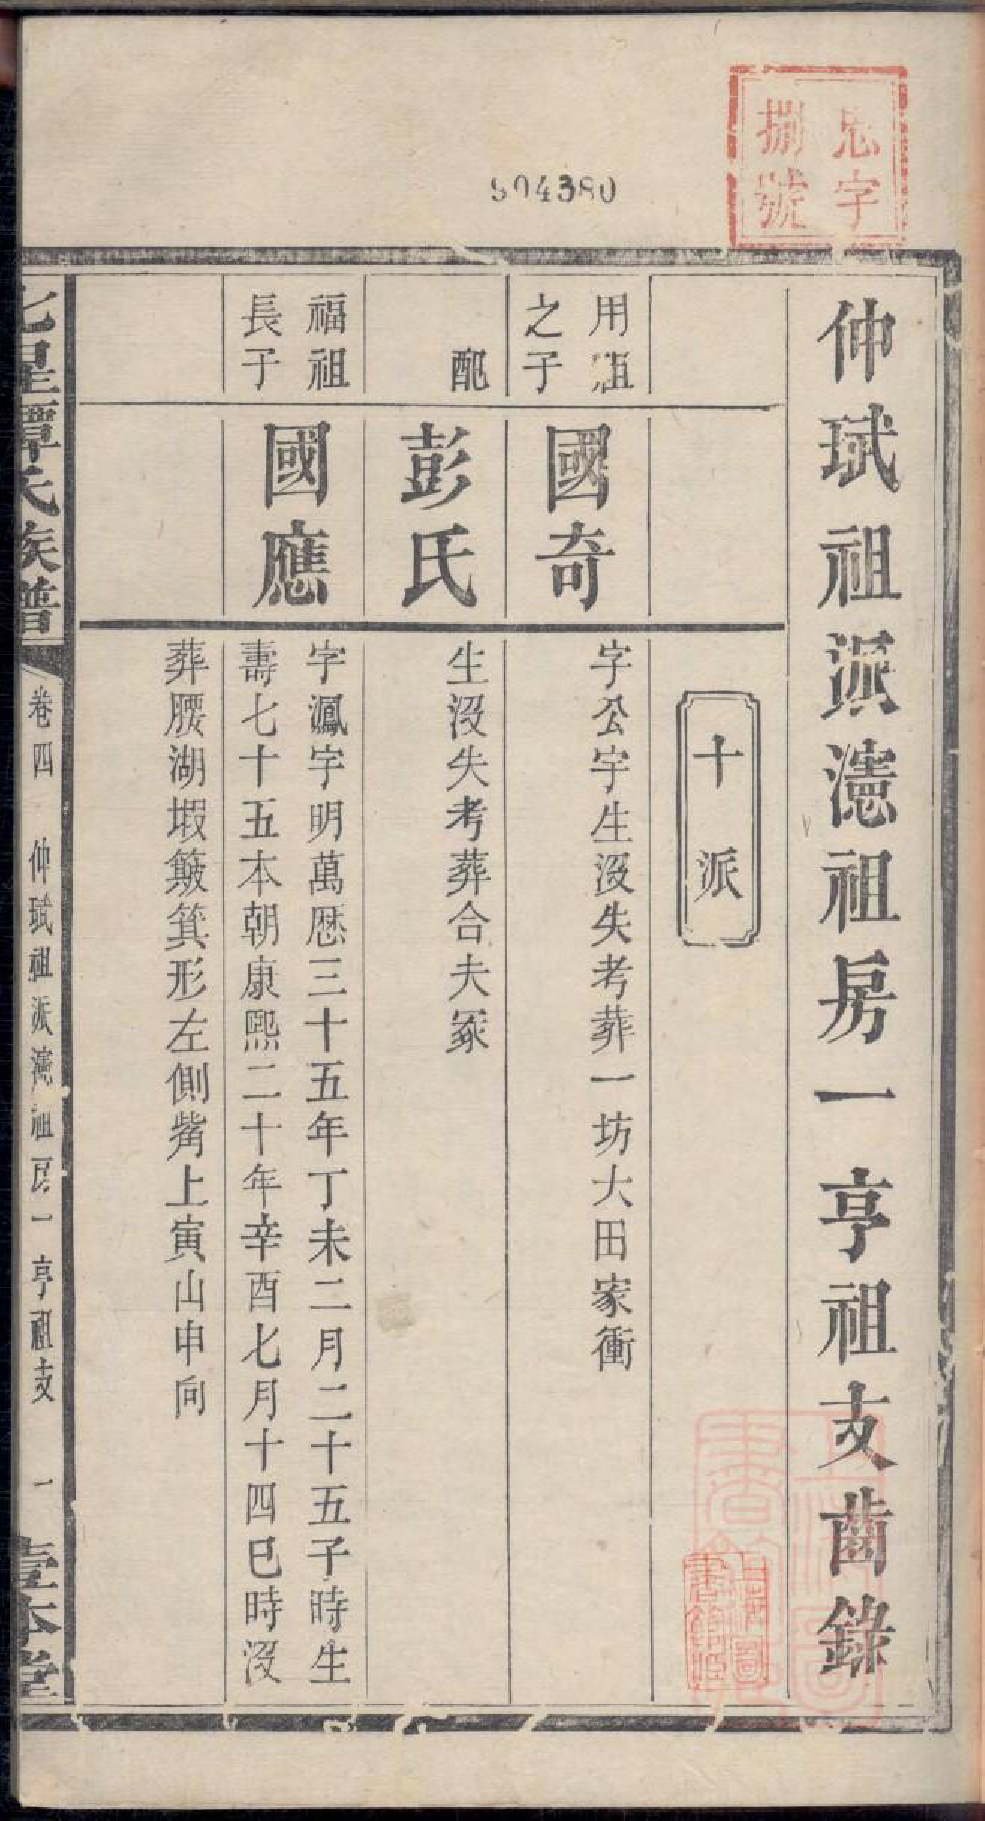 忠字
捌號
904380
仲珷祖派瀗祖房一亨祖支齒錄
十派
用祖
之子
國奇
字公宇生沒失考葬一坊大田家衝
配
彭氏
生沒失考葬合夫冢
福祖
長子
國應
字鳳宇明萬歷三十五年丁未二月二十五子時生
壽七十五本朝康熙二十年辛酉七月十四巳時沒
葬腰湖塅簸箕形左側嘴上寅山申向
七星譚氏族譜
卷四
仲珷祖派瀗祖房一亨祖支
一
壹本堂
上海圖
書館藏